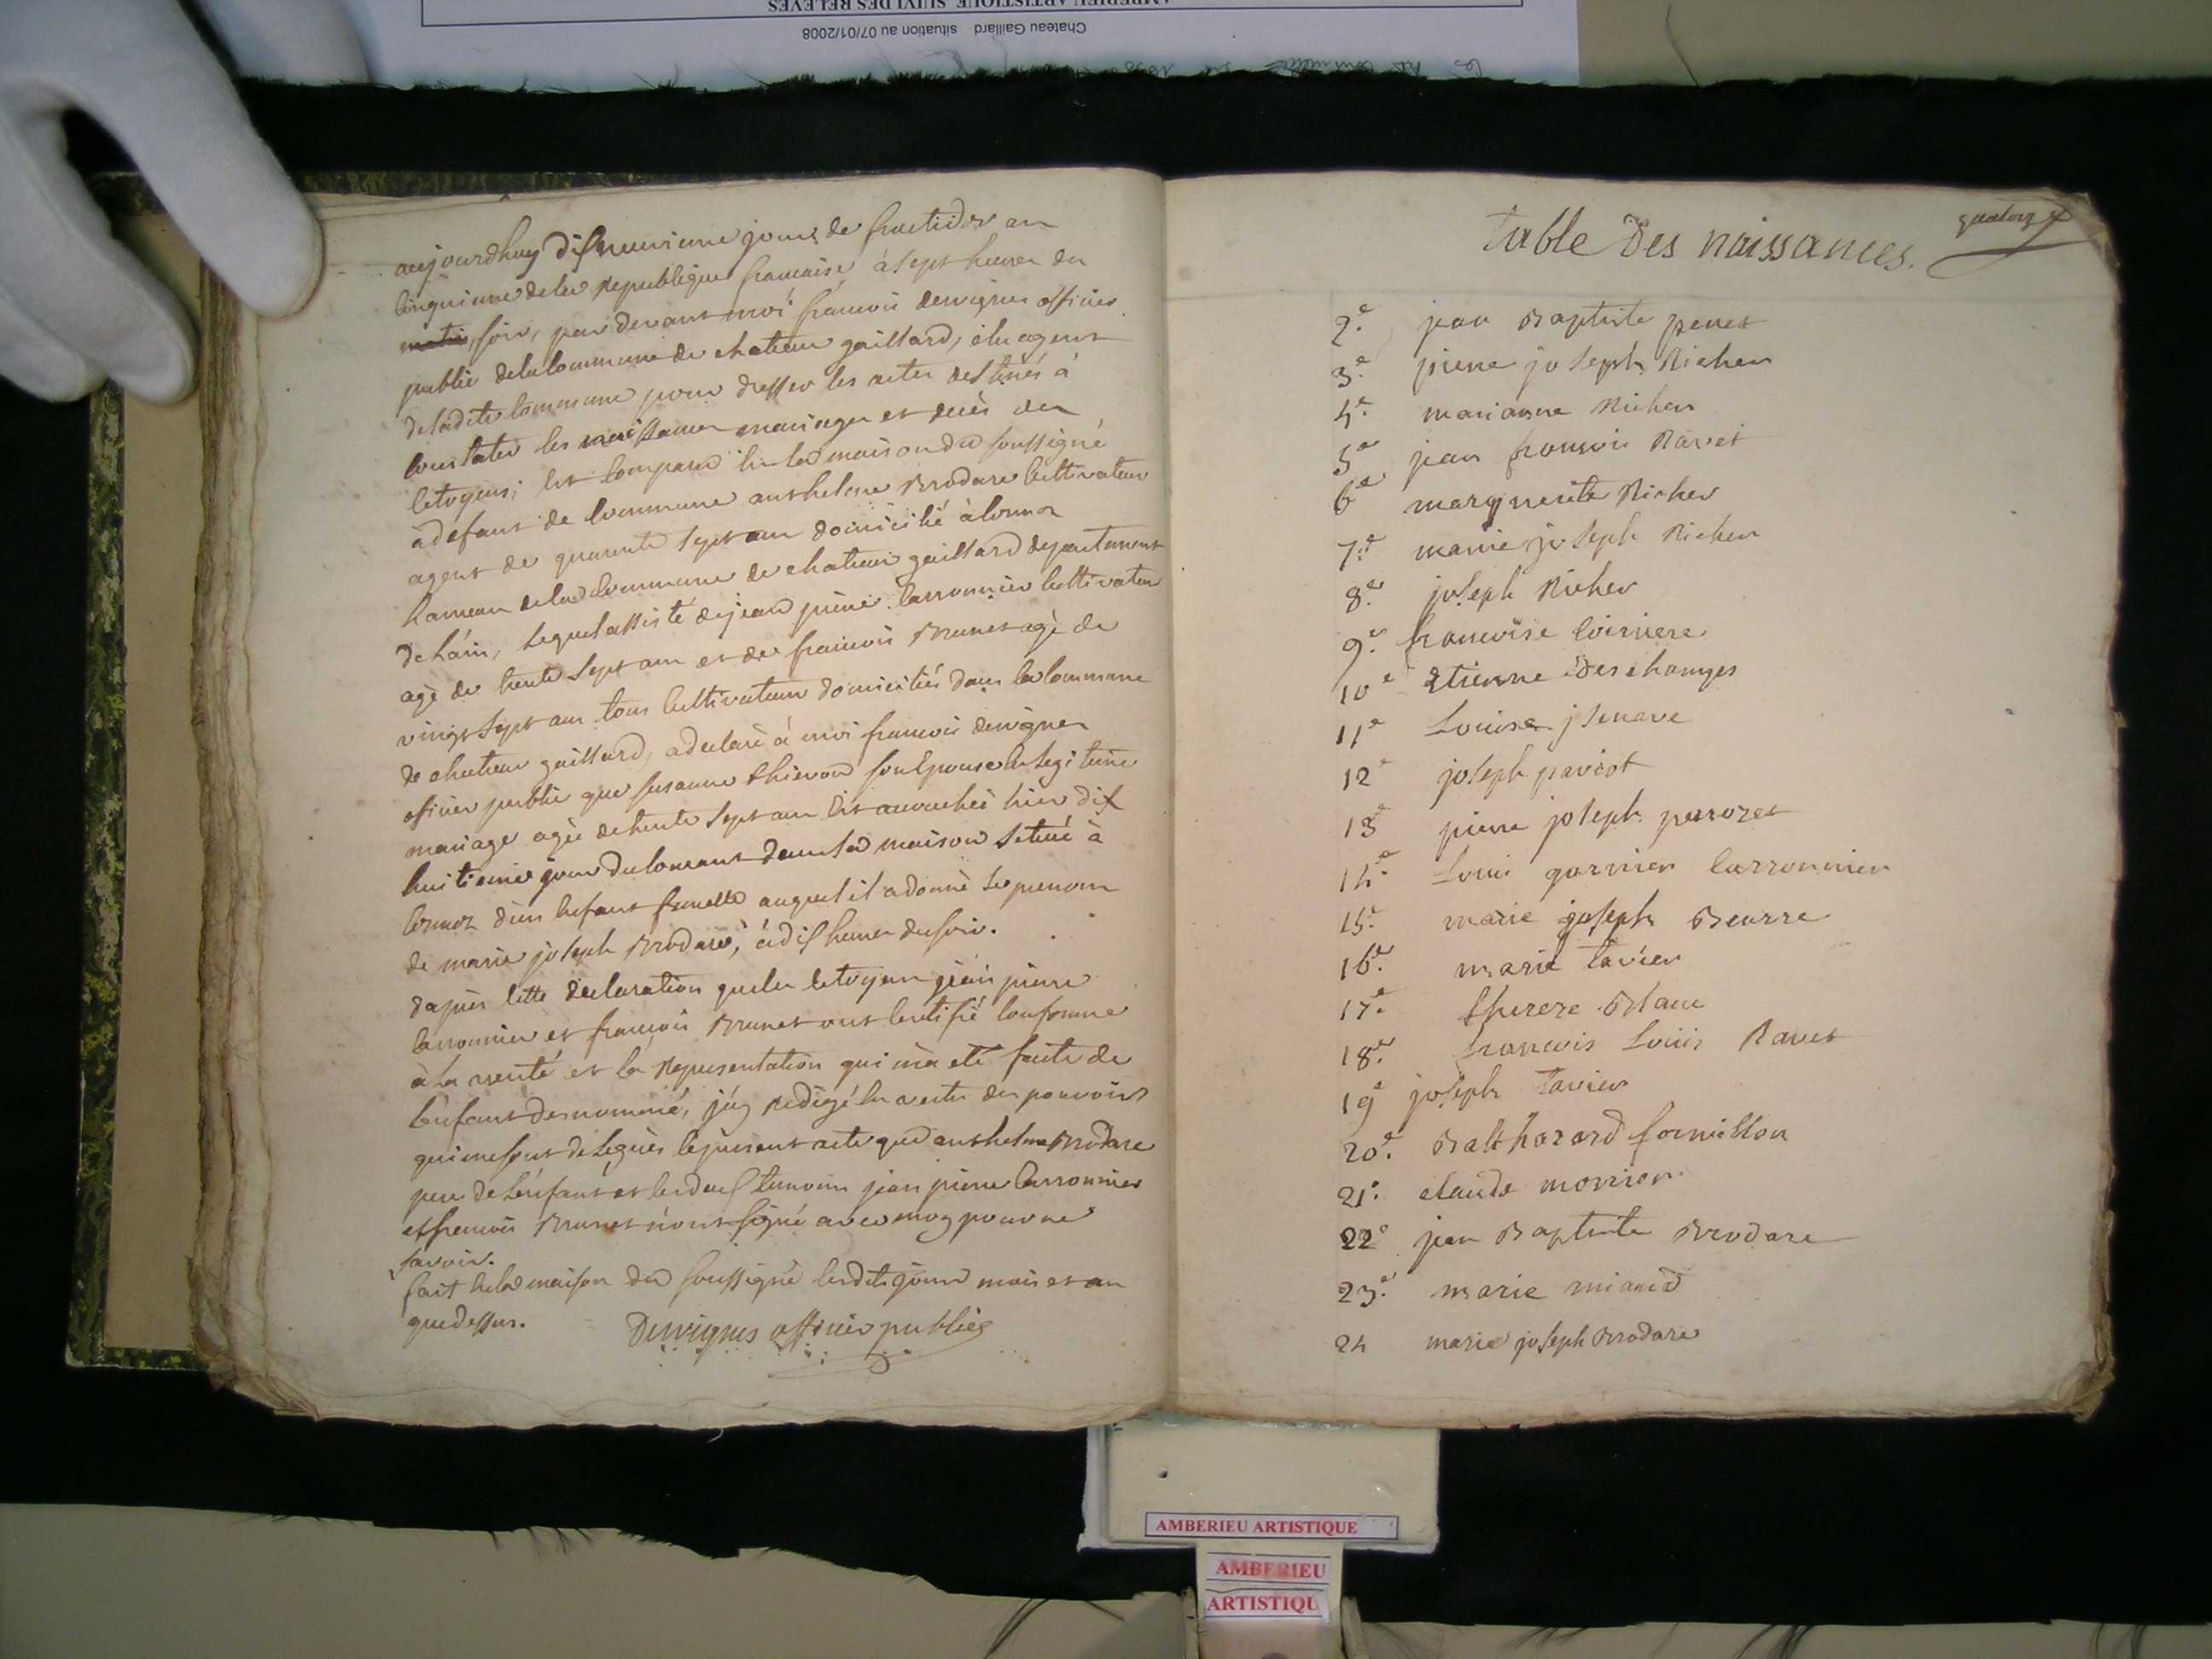 AMBERIEU ARTISTIQUE SUIVI DES RELEVES
Chateau Gaillard situation au 07/01/2008
aujourdhuy dixneuvieme jour de fructidor an
cinquieme dela Republique francaise, à sept heures du
matin soir, par devant moi francois dervignes officier
public dela commune de chateau gaillard, élu agent
deladite commune pour dresser les actes destinés à
constater les naissances mariages et decès des
citoyens; est comparu en la maison du soussigné
àdefaut de commune anthelme Brodare cultivateur
agent de quarente sept ans domicilié à cormoz
hameau dela commune de chateau gaillard departement
de l'ain, lequel assisté de jean pierre carronnier cultivateur
agé de trente sept ans et de francois Brunet agé de
vingt sept ans tous cultivateurs domiciliés dans la commune
de chateau gaillard, a declaré à moi francois dervignes
oficier public que susanne thievon son epouse en legitime
mariage agée de trente sept ans est accouchée hier dix
huitieme jour du courant dans sa maison située à
cormoz d'un enfant femelle auquel il a donné le prenom
de marie joseph Brodare, à dix heures du soir.
dapres cette declaration que les citoyens jean pierre
carronnier et francois Brunet ont certifié conforme
à la verité et la Representation qui m'a eté faite de
l'enfant denommé, j'ay redigé en vertu des pouvoirs
qui me sont delegués le present acte que anthelme Brodare
pere de l'enfant et les deux temoins jean pierre carronnier
et francois Brunet n'ont signé avec moy pour ne
savoir.
fait en la maison du soussigné lesdits jour mois et an
que dessus.
Dervignes officier public
quatorze
table Des naissances.
2.e jean Baptiste penet
3.e pierre joseph Richer
4.e marianne Richer
5.e jean francois Ravet
6.e marguerite Richer
7.e marie joseph Richer
8.e joseph Richer
9.e francoise Loiriere
10.e Etienne Deschamps
11.e Louise jsenave
12.e joseph paviot
13.e pierre joseph perrozet
14.e Louis garnier carronnier
15.e marie joseph Beurre
16.e marie tavier
17.e therere Blanc
18.e francois Louis Ravet
19.e joseph tavier
20.e Balthazard fornillon
21.e claude monier
22.e jean Baptiste Brodare
23.e marie miand
24 marie joseph Brodare
AMBERIEU ARTISTIQUE
AMBERIEU
ARTISTIQU